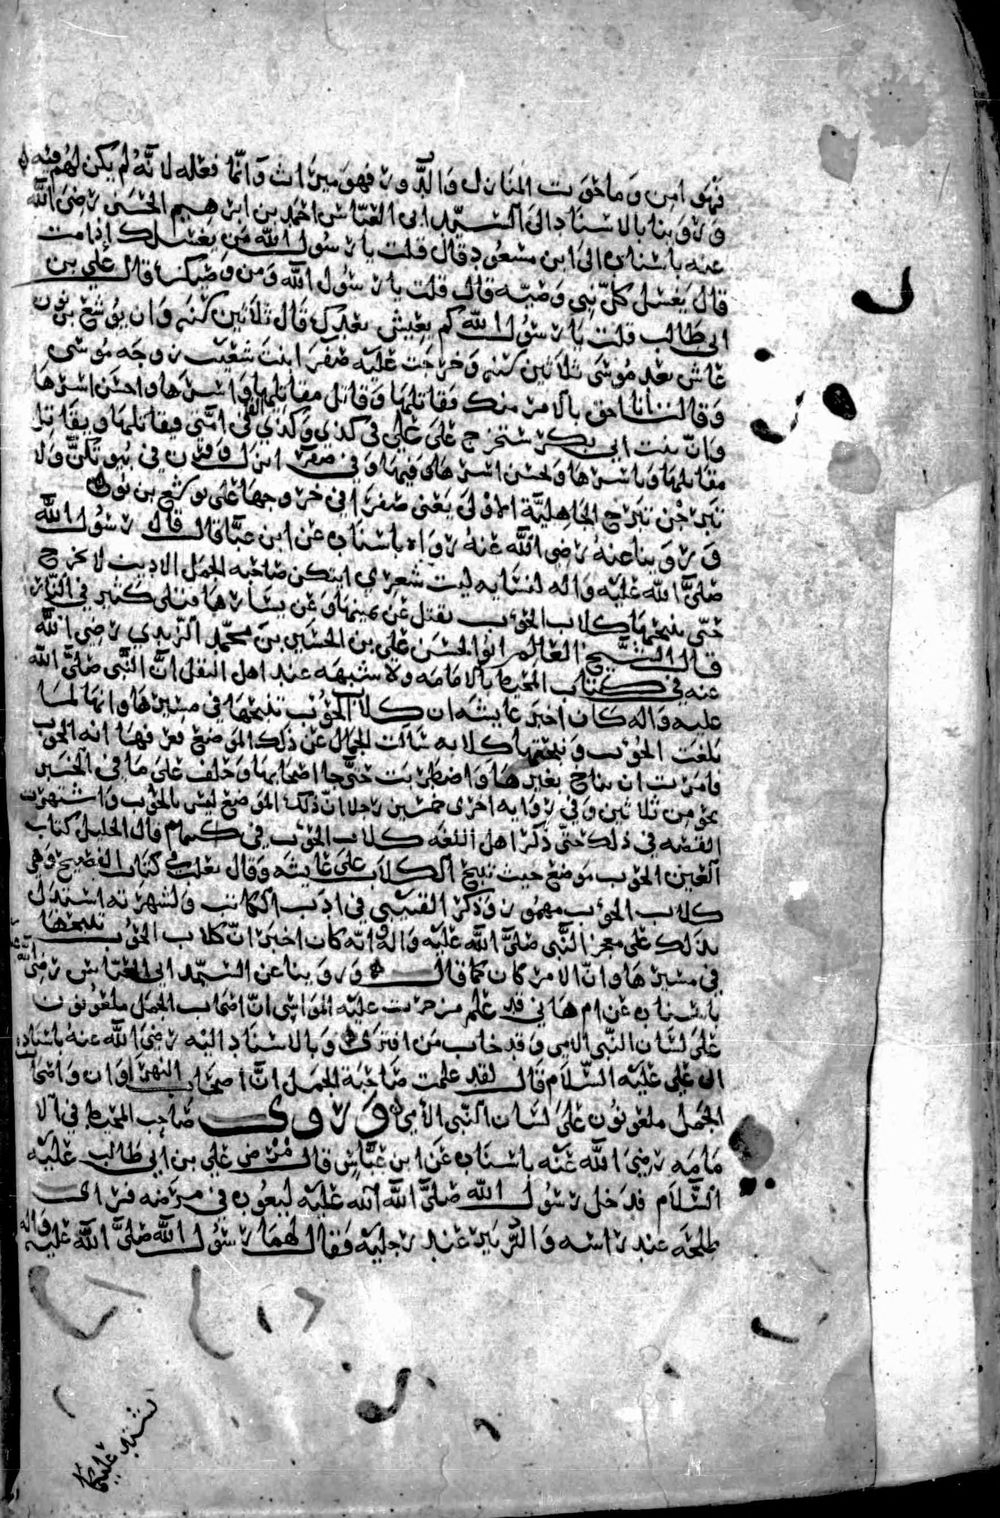 فهو امن وما حوت المنازل والدور فهو ميراث وانما فعله لانه لم يكن لهم فيه
وروينا بالاسناد الى السيد ابي العباس احمد بن ابرهيم الحسني رضي الله
عنه باسناده الى ابن مسعود قال قلت يا رسول الله من يغسلك اذا مت
قال يغسل كل نبي وصيه قال قلت يا رسول الله ومن وصيك قال علي بن
ابي طالب قلت يا رسول الله كم يعيش بعدك قال ثلاثين سنه وان يوشع بن نون
عاش بعد موسى ثلاثين سنه وخرجت عليه صفرا ابنت شعيب زوجه موسى
وقالت انا احق بالامر منك فقاتلها وقاتل مقاتليها واسرها واحسن اسرها
وان بنت ابي بكر ستخرج على علي في كذي وكذي الفا من امتي فيقاتلها ويقاتل
مقاتليها وياسرها ويحسن اسرها وفيها وفي صفرا انزل وقرن في بيوتكن ولا
تبرجن تبرج الجاهلية الاولى يعني صفرا في خروجها على يوشع بن نون
وروينا عنه رضي الله عنه رواه باسناده عن ابن عباس قال قال رسول الله
صلى الله عليه واله لنسايه ليت شعري ايتكن صاحبه الجمل الاديب تخرج
حتى تنبحها كلاب الحوب يقتل عن يمينها وعن يسارها قتلى كثير في النار
قال الشيخ العالم ابو الحسن علي بن الحسين بن محمد الزيدي رضي الله
عنه في كتاب المحيط بالامامه ولا شبهه عند اهل النقل ان النبي صلى الله
عليه واله كان اخبر عايشه ان كلاب الحوب تنبحها في مسيرها وانها لما
بلغت الحوب ونبحتها كلابه سالت الجمال عن ذلك الموضع فعرفها انه الحوب
فامرت ان يناخ بعيرها واضطربت حتى جا اصحابها وحلف على ما في الخبر
نحو من ثلاثين وفي روايه اخرى خمسين رجلا ان ذلك الموضع ليس بالحوب واشتهرت
القصه في ذلك حتى ذكر اهل اللغه كلاب الحوب في كتبهم قال الخليل كتاب
العين الحوب موضع حيث تنبح الكلاب على عايشه وقال ثعلب في كتاب الفصيح وهي
كلاب الحوب مهموز وذكر القتيبي في ادب الكاتب ولشهرته استدل
بذلك على معجز النبي صلى الله عليه واله انه كان اخبر ان كلاب الحوب تنبحها
في مسيرها وان الامر كان كما قال وروينا عن السيد ابي العباس رضي الله
باسناده عن ام هاني قد علم من جرت عليه المواسي ان اصحاب الجمل ملعونون
على لسان النبي الامي وقد خاب من افترى وبالاسناد اليه رضي الله عنه باسناده
الى علي عليه السلام قال لقد علمت صاحبة الجمل ان اصحاب النهروان واصحاب
الجمل ملعونون على لسان النبي الامي وروى صاحب المحيط في الا
مامه رضي الله عنه باسناده عن ابن عباس قال مرض علي بن ابي طالب عليه
السلام فدخل رسول الله صلى الله عليه ليعوده في مرضه فراى
طلحه عند راسه والزبير عند رجليه فقال لهما رسول الله صلى الله عليه واله